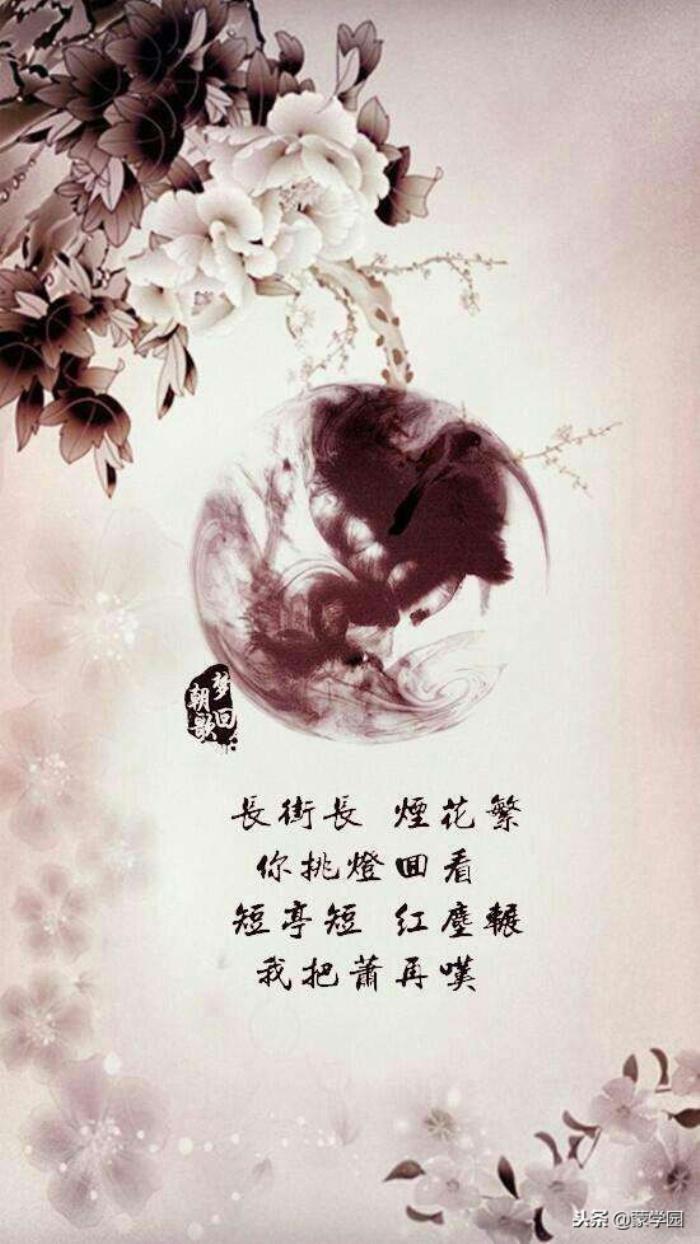 梦回
朝歌
長街長 煙花繁
你挑燈回看
短亭短 紅塵輾
我把蕭再嘆
头条 @蒙学园